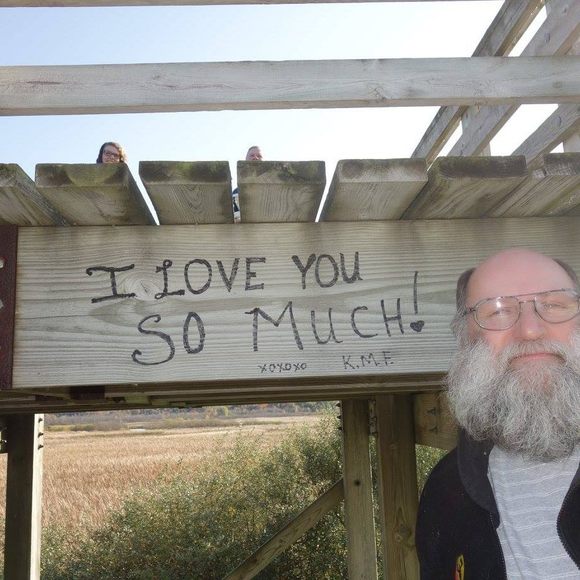 I LOVE YOU
SO MUCH!
xoxoxo K.M.F.